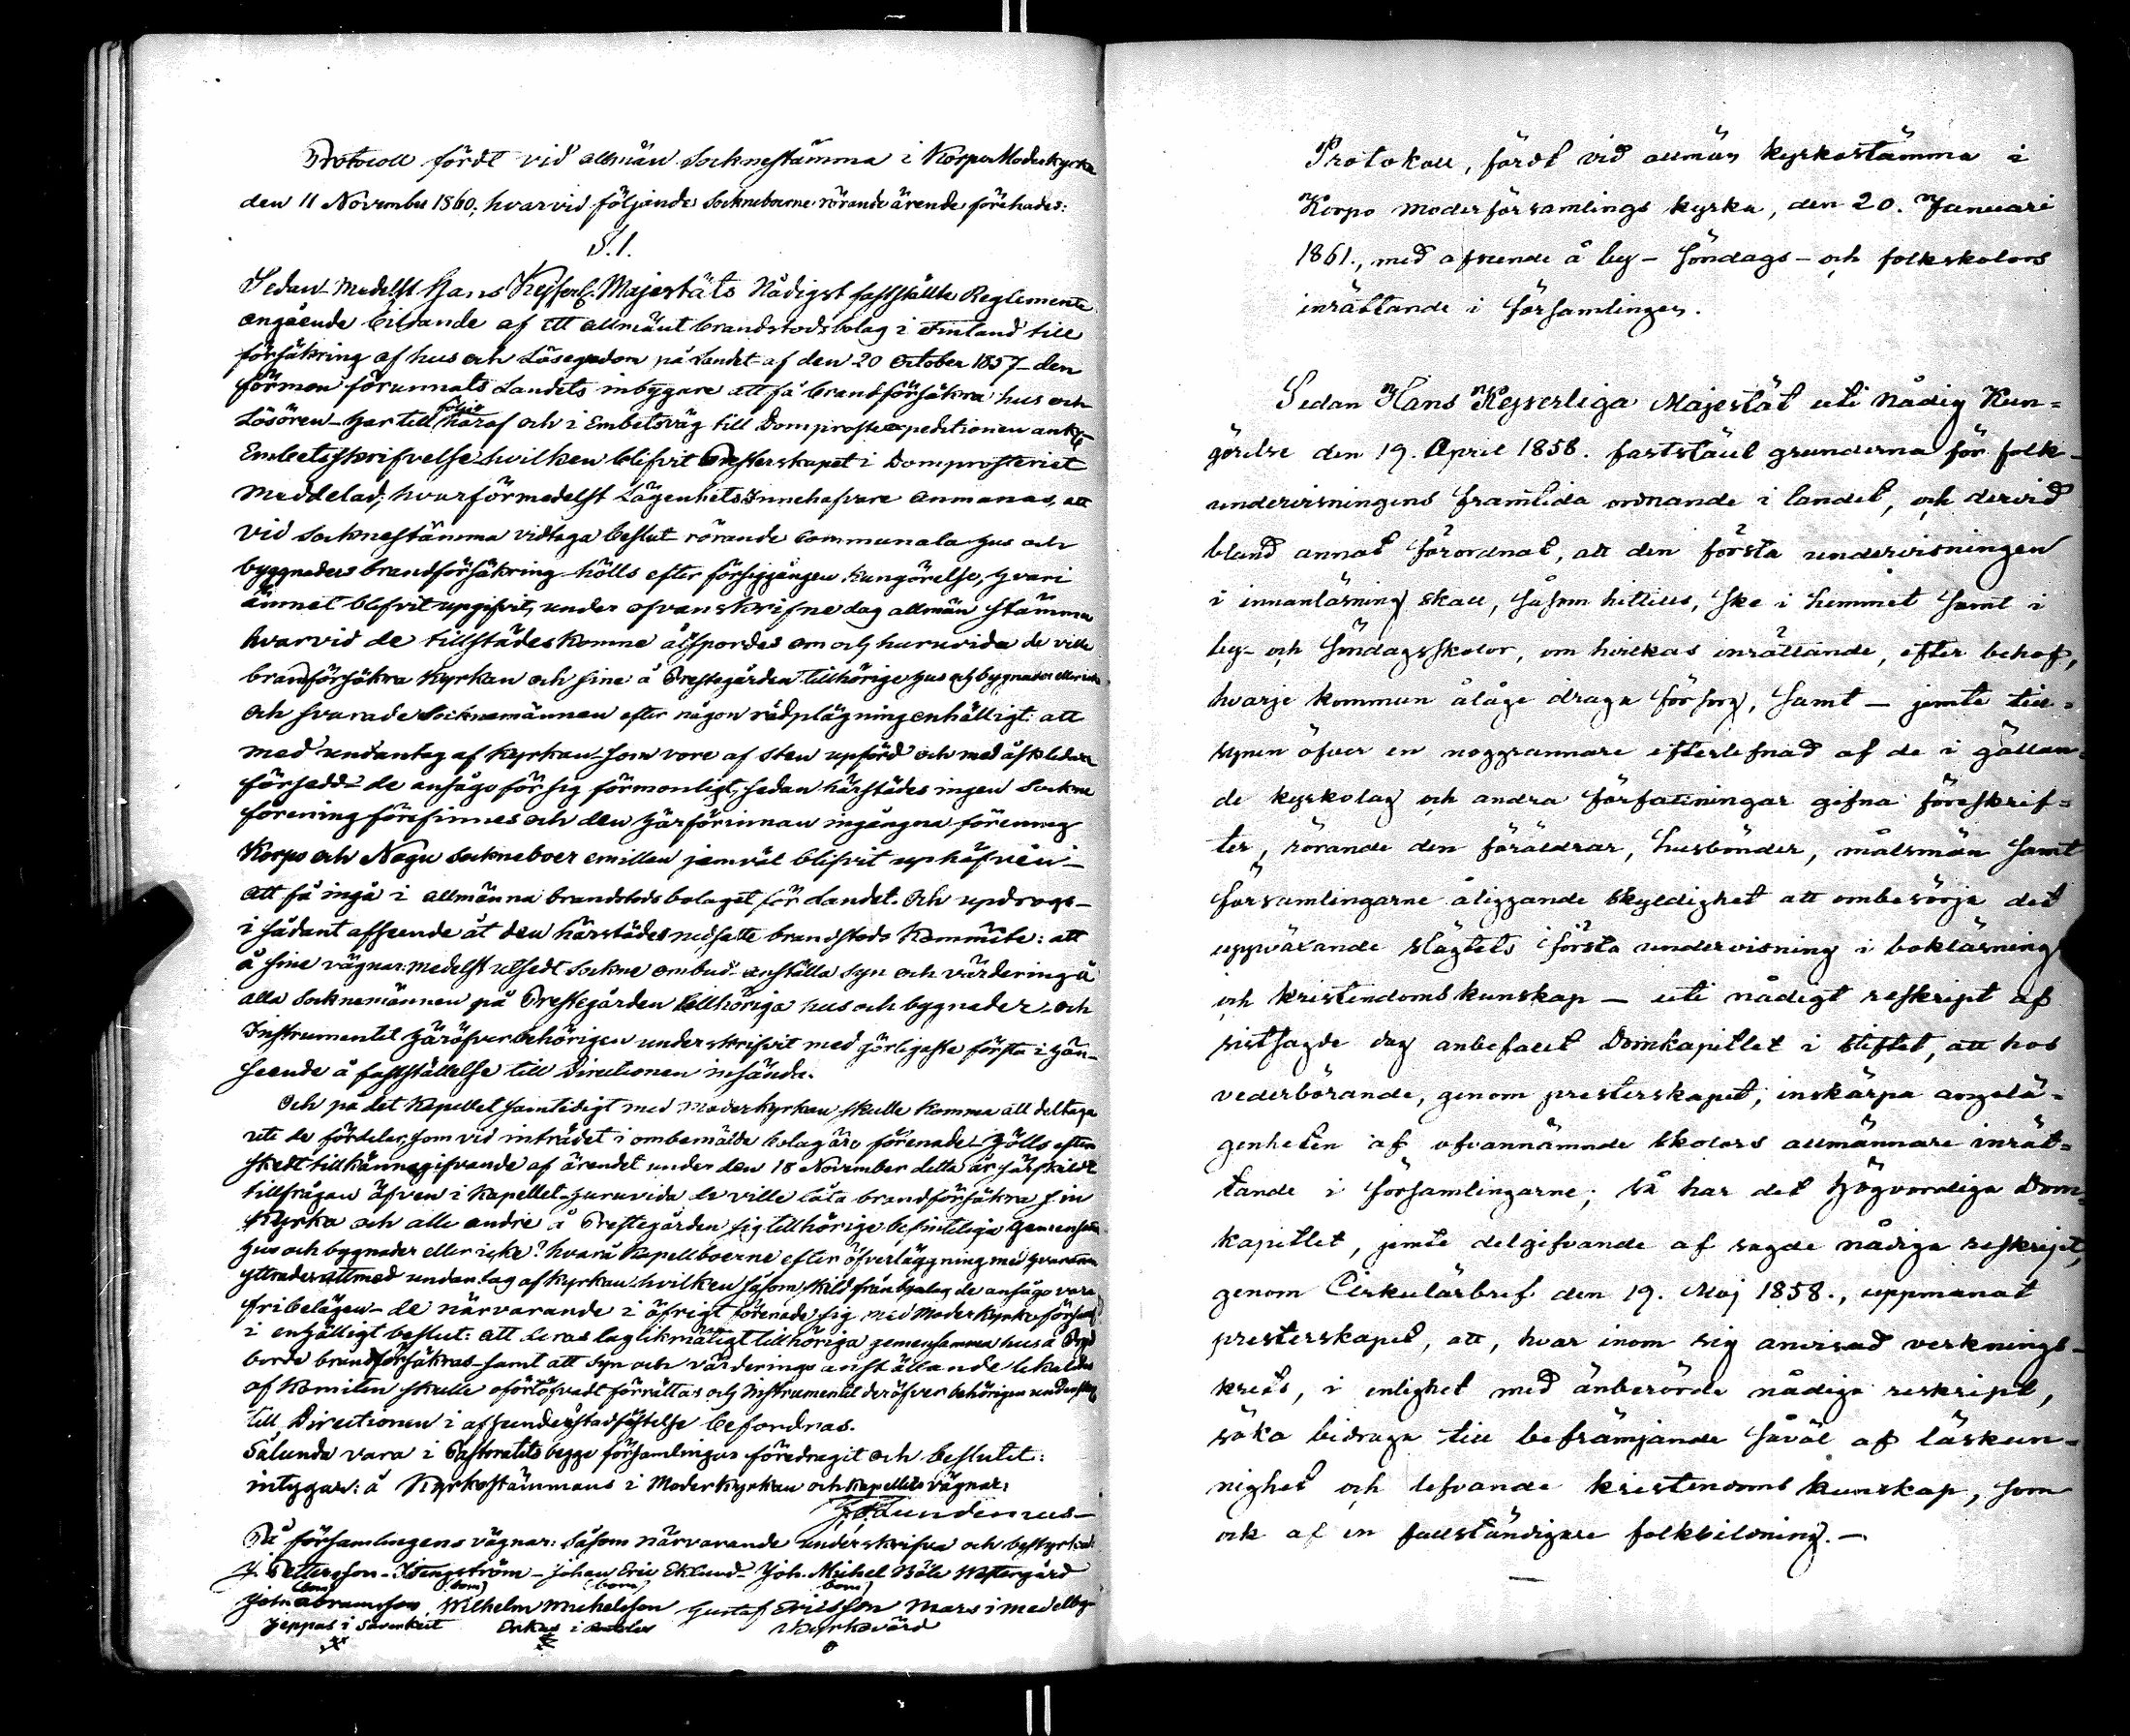 Protocoll fördt vid allmän Socknestämma i Korpo Moderkyrka
den 11 November 1860, hvarvid följande Socknebоerne rörande ärende förehades:
§. 1.
Sedan medelst Hans Kejserl. Majestäts Nådigst fastställte Reglemente
angående bildande af ett allmänt brandstodsbolag i Finland till
försäkring af hus och Lösegendom på landet af den 20 October 1857 den
förmon förunnats Landets inbyggare att få brandförsäkra hus och
Lösören har till följe häraf och i Embetsväg till Domprosteexpeditionen ank:
Embetsskrifvelse hvilken blifvit Presterskapet i Domprosteriet
meddelad; hvarförmedelst Lägenhets Innehafvare anmanas, att
vid socknestämma vidtaga beslut rörande communala hus och
byggnaders brandförsäkring hölls efter försiggången kungörelse, hvari
ämnet blifvit uppgifvit, under ofvanskrifne dag allmän stämma
hvarvid de tillstädeskomne åtspordes om och huruvida de ville
brandförsäkra Kyrkan och sine å Prestegården tillhörige hus och bygnader eller icke
och svarade Socknemännen efter någon rådplägning enhälligt: att
med undantag af Kyrkan som vore af sten uppförd och med åskledare
försedd de ansågo för sig förmonligt, sedan härstädes ingen Sockne
förening förefinnes och den härförinnan ingångna förening
Korpo och Nagu Sockneboer emillan jemväl blifvit uphäfven
att få ingå i allmänna brandstodsbolaget för Landet. Och updrogs
i sådant afseende åt den härstädes nedsatte brandstods Kommite: att
å sine vägnar medelst utsedt Sockne ombud anställa syn och värdering å
alla Socknemännen på Prestegården tillhöriga hus och bygnader och
Instrumentet häröfver behörigen underskrifvit med görligaste första i hän-
seende å fastställelse till Directionen insända.
Och på det Kapellet samtidigt med Moderkyrkan skulle komma att deltaga
uti de fördelar, som vid inträdet i ombemälde bolag äro förenade hölls efter
skedt tillkännagifvande af ärendet under den 18 November detta år särskildt
tillfrågan äfven i Kapellet huruvida de ville låta brandförsäkra sin
Kyrka och alle andre å Prestegården sig tillhörige befintliga gemensamma
hus och bygnader eller icke? hvarå Kapellboerne efter öfverläggning med hvarann
yttrade: att med undantag af Kyrkan hvilken såsom skild från bylag de ansågo vara
fribelägen de närvarande i öfrigt förenade sig med Moderkyrko förs:
i enhälligt beslut: att deras laglikmätigt tillhöriga gemensamma hus å
borde brandförsäkras samt att syn och värderings anställande likaledes
af Komiten skulle oförtöfvadt förrättas och Instrumentet deröfver behörigen
till Directionen i afseende å stadfästelse befordras.
Sålunda vara i Pastoratets begge församlingar föredragit och beslutit:
intygar: å Kyrkostämmans i Moderkyrkan och Kapellets vägnar:
På församlingens vägnar: såsom närvarande underskrifva och bestyrka:
J. Pettersson Johan Eric Eklund Joh. Michel Böle Westergård
(bom) (bom) (bom) (bom)
Johan Abramsson Wilhelm Michelsson Gustaf Ericsson Mars i Medelby
Jeppas i Erkas i Kyrkovärd
Protokoll, fördt vid allmän kyrkostämma i
Korpo moderförsamlings kyrka, den 20. Januari
1861., med afseende å by- söndags- och folkskolors
inrättande i församlingen.
Sedan Hans Kejserliga Majestät uti nådig Kun=
görelse den 19. April 1858. faststält grunderna för folk-
undervisningens framtida ordnande i landet, och dervid
bland annat förordnat, att den första undervisningen
i innanläsning skall, såsom hittills, ske i hemmet samt i
by- och söndagsskolor, om hvilkas inrättande, efter behof,
hvarje kommun ålåge draga försorg, samt — jemte till=
synen öfver en noggrannare efterlefnad af de i gällan=
de kyrkolag och andra författningar gifna föreskrif=
ter, rörande den föräldrar, husbönder, målsmän samt
församlingarne åliggande skyldighet att ombesörja det
uppväxande slägtets första undervisning i bokläsning
och kristendoms kunskap — uti nådigt reskript af
sistsagde dag anbefallt Domkapitlet i stiftet, att hos
vederbörande, genom presterskapet, inskärpa angelä=
genheten af ofvannämnde skolors allmännare inrät=
tande i församlingarne; så har det Högvördiga Dom=
kapitlet, jemte delgifvande af sagde nådiga reskript,
genom Cirkulärbref den 19. Maj 1858., uppmanat
presterskapet, att, hvar inom sig anvisad verknings-
krets, i enlighet med änberörde nådiga reskript,
söka bidraga till befrämjande såväl af läskun=
nighet och lefvande kristendoms kunskap, som
ock af en fullständigare folkbildning. —